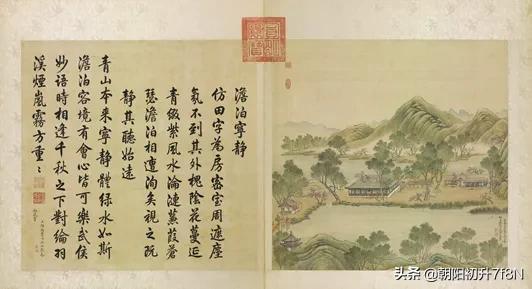 澹泊寧靜
仿田字為房密室周遮塵
氛不到其外槐陰花蔓延
青綴紫風水淪漣蒹葭蒼
瑟澹泊相遭洵矣視之既
靜其聽始遠
青山本來寧靜體綠水如斯
澹泊容境有會心皆可樂武侯
妙語時相逢千秋之下對綸羽
溪煙嵐霧方重〻
头条 @朝阳初升7f8N